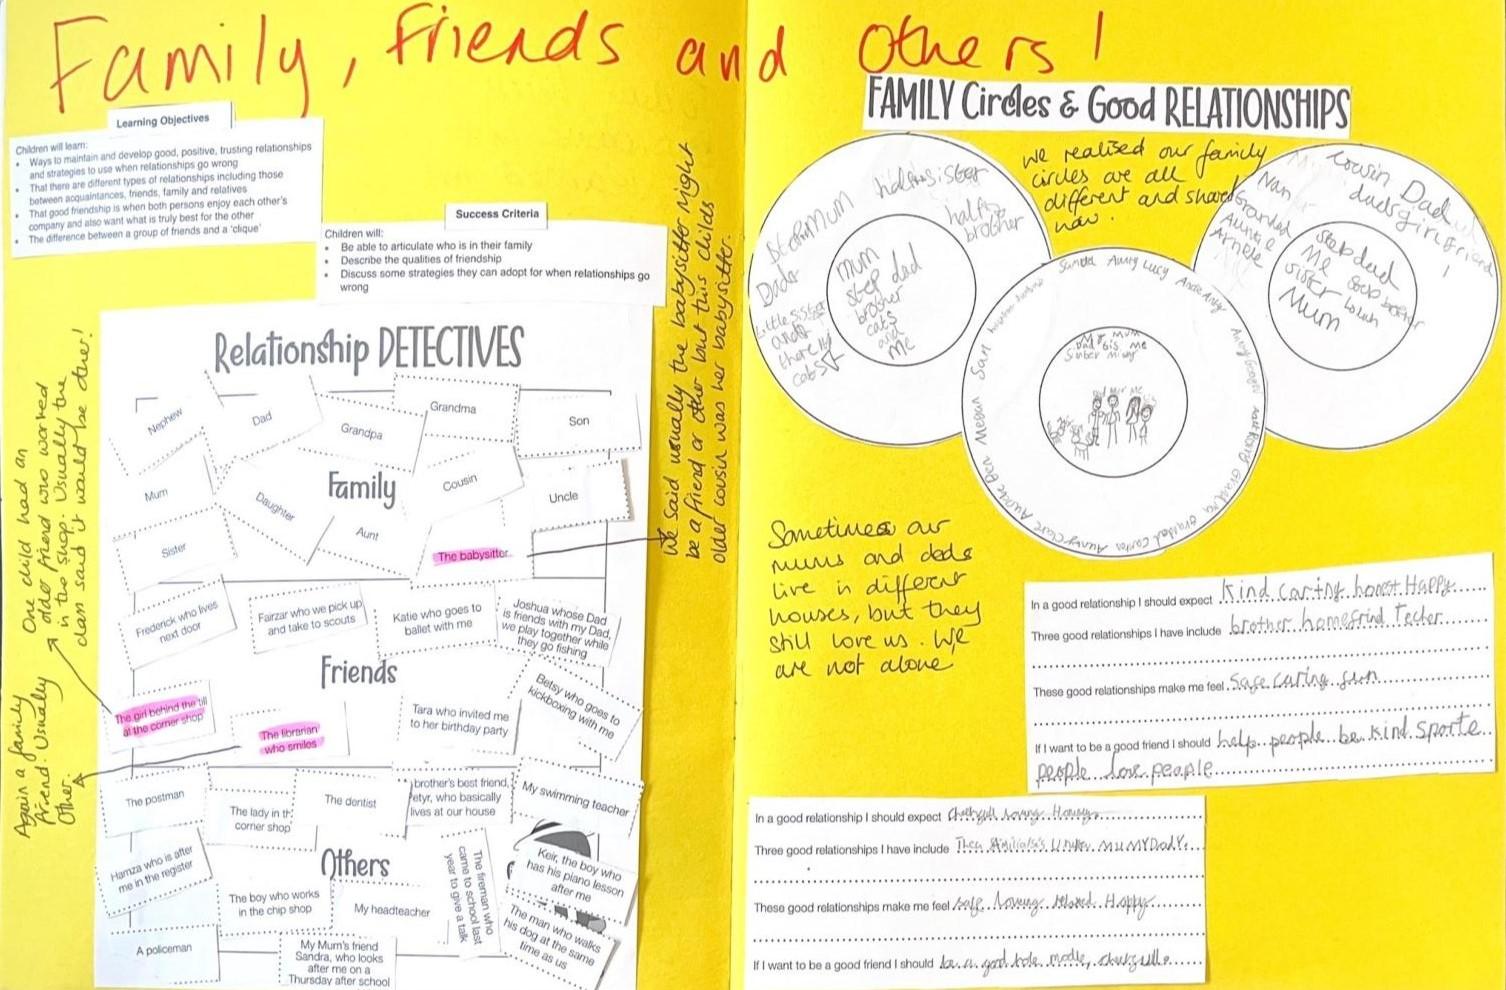 Family, friends and Others!
Learning Objectives
Children will learn:
• Ways to maintain and develop good, positive, trusting relationships
and strategies to use when relationships go wrong
• That there are different types of relationships including those
between acquaintances, friends, family and relatives
• That good friendship is when both persons enjoy each other's
company and also want what is truly best for the other
• The difference between a group of friends and a 'clique'
Success Criteria
Children will:
• Be able to articulate who is in their family
• Describe the qualities of friendship
• Discuss some strategies they can adopt for when relationships go
wrong
Relationship DETECTIVES
Nephew
Dad
Grandpa
Grandma
Son
Mum
Daughter
Family
Cousin
Uncle
Sister
Aunt
The babysitter
Frederick who lives
next door
Fairzar who we pick up
and take to scouts
Katie who goes to
ballet with me
Joshua whose Dad
is friends with my Dad,
we play together while
they go fishing
Friends
The girl behind the till
at the corner shop
The librarian
who smiles
Tara who invited me
to her birthday party
Betsy who goes to
kickboxing with me
The postman
The lady in th
corner shop
The dentist
brother's best friend,
etyr, who basically
lives at our house
My swimming teacher
Others
Hamza who is after
me in the register
The boy who works
in the chip shop
My headteacher
The fireman who
came to school last
year to give a talk
Keir, the boy who
has his piano lesson
after me
The man who walks
his dog at the same
time as us
A policeman
My Mum's friend
Sandra, who looks
after me on a
Thursday after school
One child had an
older friend who worked
in the shop. Usually the
class said it would be other!
Again a family
friend. Usually
Other.
We said usually the babysitter might
be a friend or other but this childs
older cousin was her babysitter.
FAMILY Circles & Good RELATIONSHIPS
We realised our family
circles are all
different and shared
now.
StepMum
half sister
half
brother
Dads
Little sister
and
there
cats
mum
step dad
brother
cats
and
Me
Aunty Lucy
Megan
Sam
Mum
Dad
me
Nan
Grandad
Auntie
Cousin Dad
dads girlfriend
Stepdad
Me
Sister
Mum
Sometimes our
mums and dads
live in different
houses, but they
still love us. We
are not alone
In a good relationship I should expect kind caring honest Happy
Three good relationships I have include brother home frind Techer
These good relationships make me feel safe caring fun
If I want to be a good friend I should help people be kind sporte
people love people
In a good relationship I should expect loving
Three good relationships I have include
These good relationships make me feel safe loving Happy
If I want to be a good friend I should be a good role